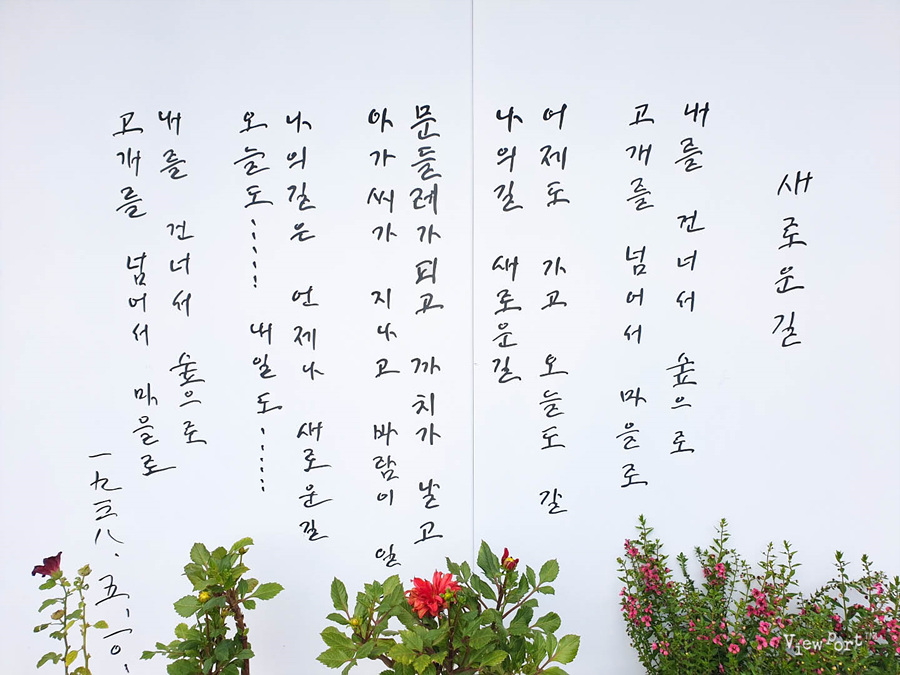 새로운길
내를 건너서 숲으로
고개를 넘어서 마을로
어제도 가고 오늘도 갈
나의길 새로운길
문들레가피고 까치가 날고
아가씨가 지나고 바람이 일
나의길은 언제나 새로운길
오늘도…… 내일도……
내를 건너서 숲으로
고개를 넘어서 마을로
一九三八.五.一〇.
ViewPort